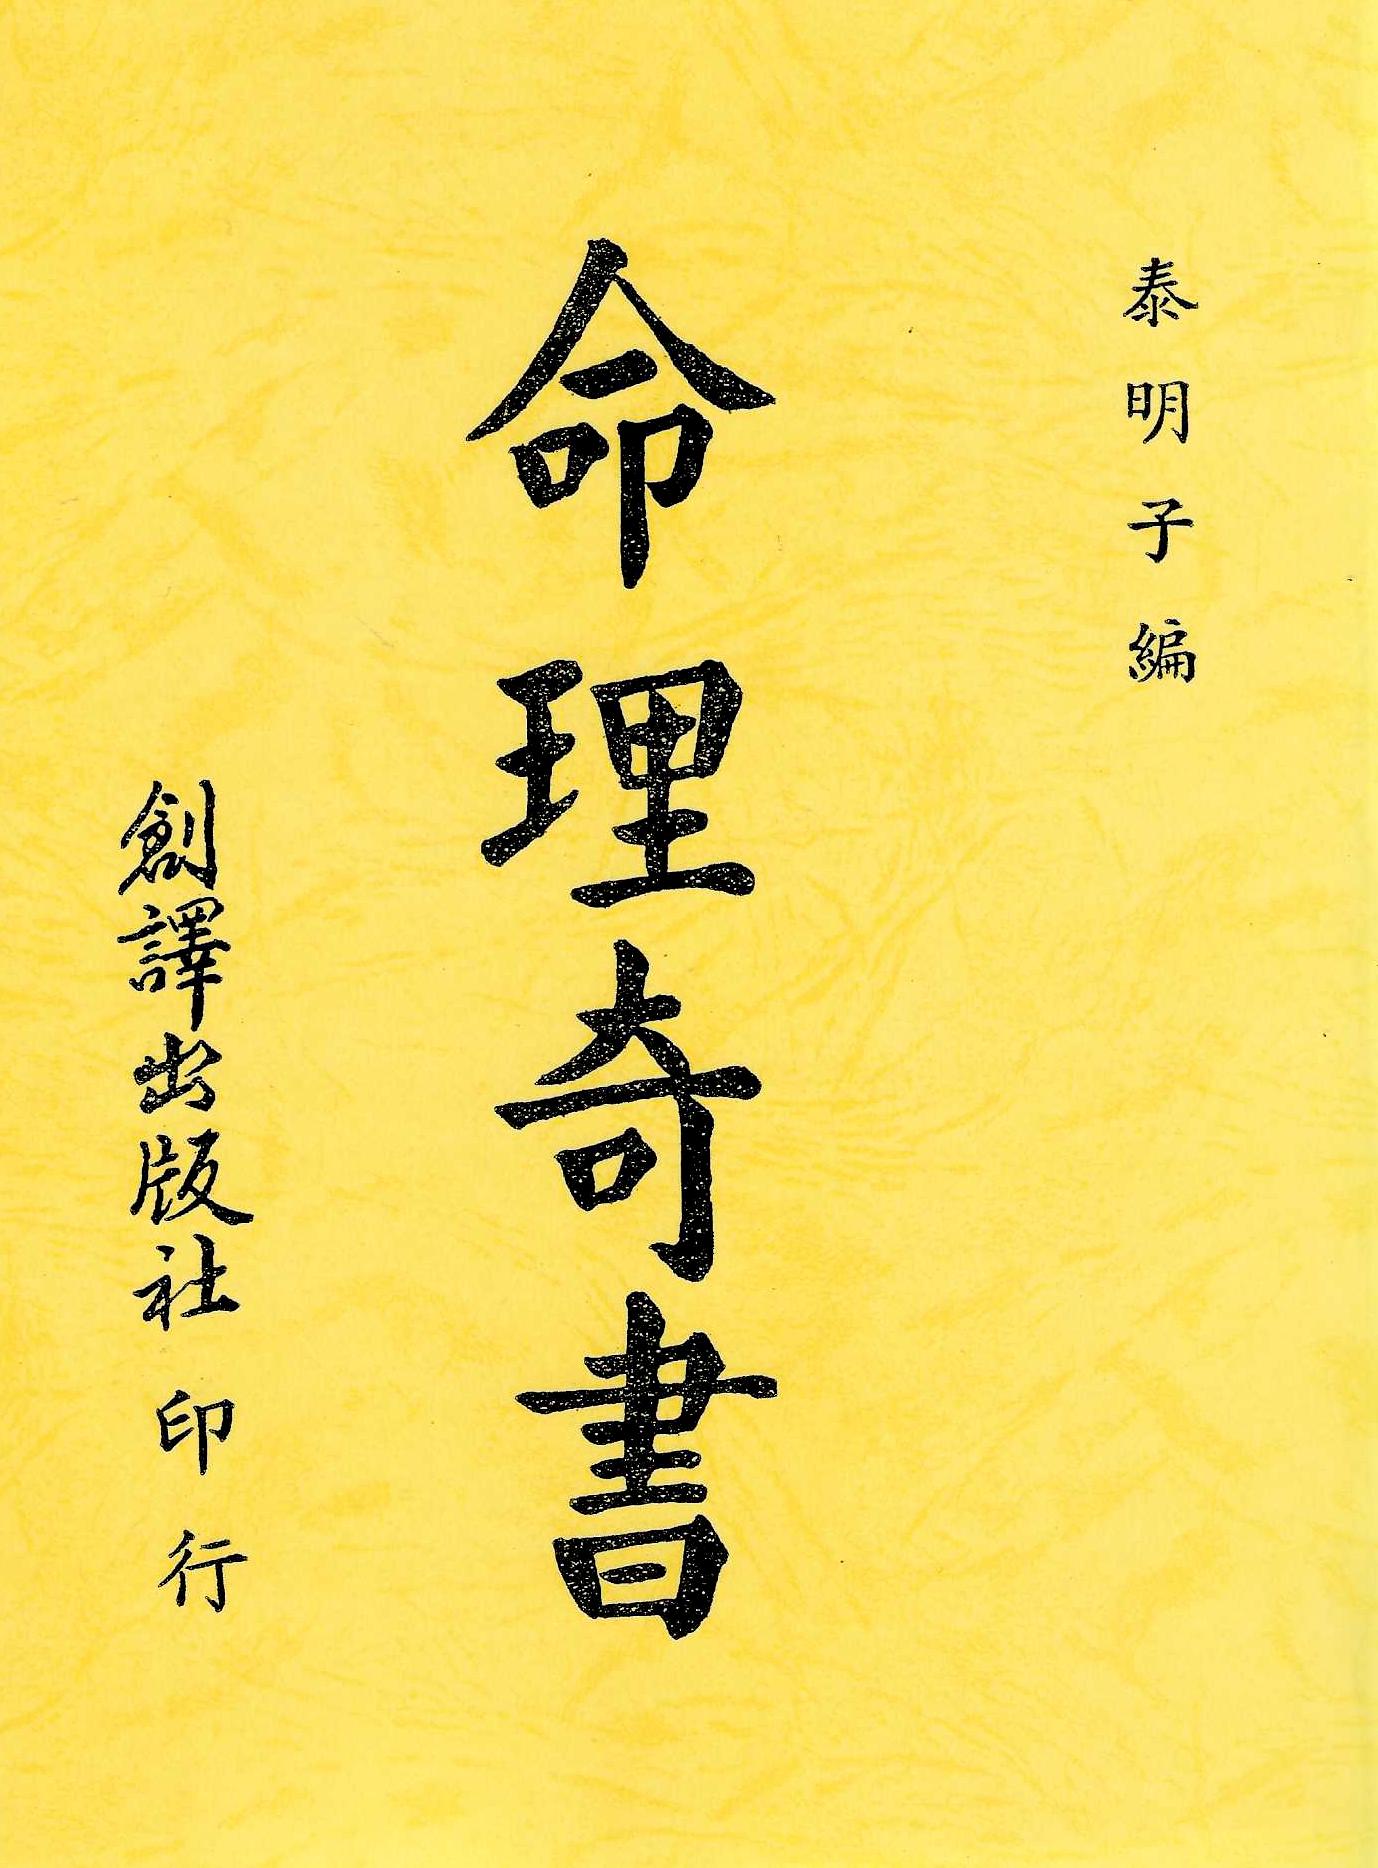 泰明子編
命理奇書
創譯出版社印行